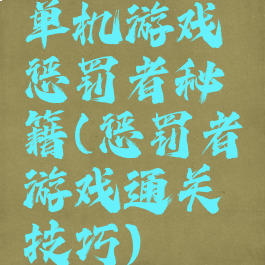 单机游戏
惩罚者秘
籍(惩罚者
游戏通关
技巧)